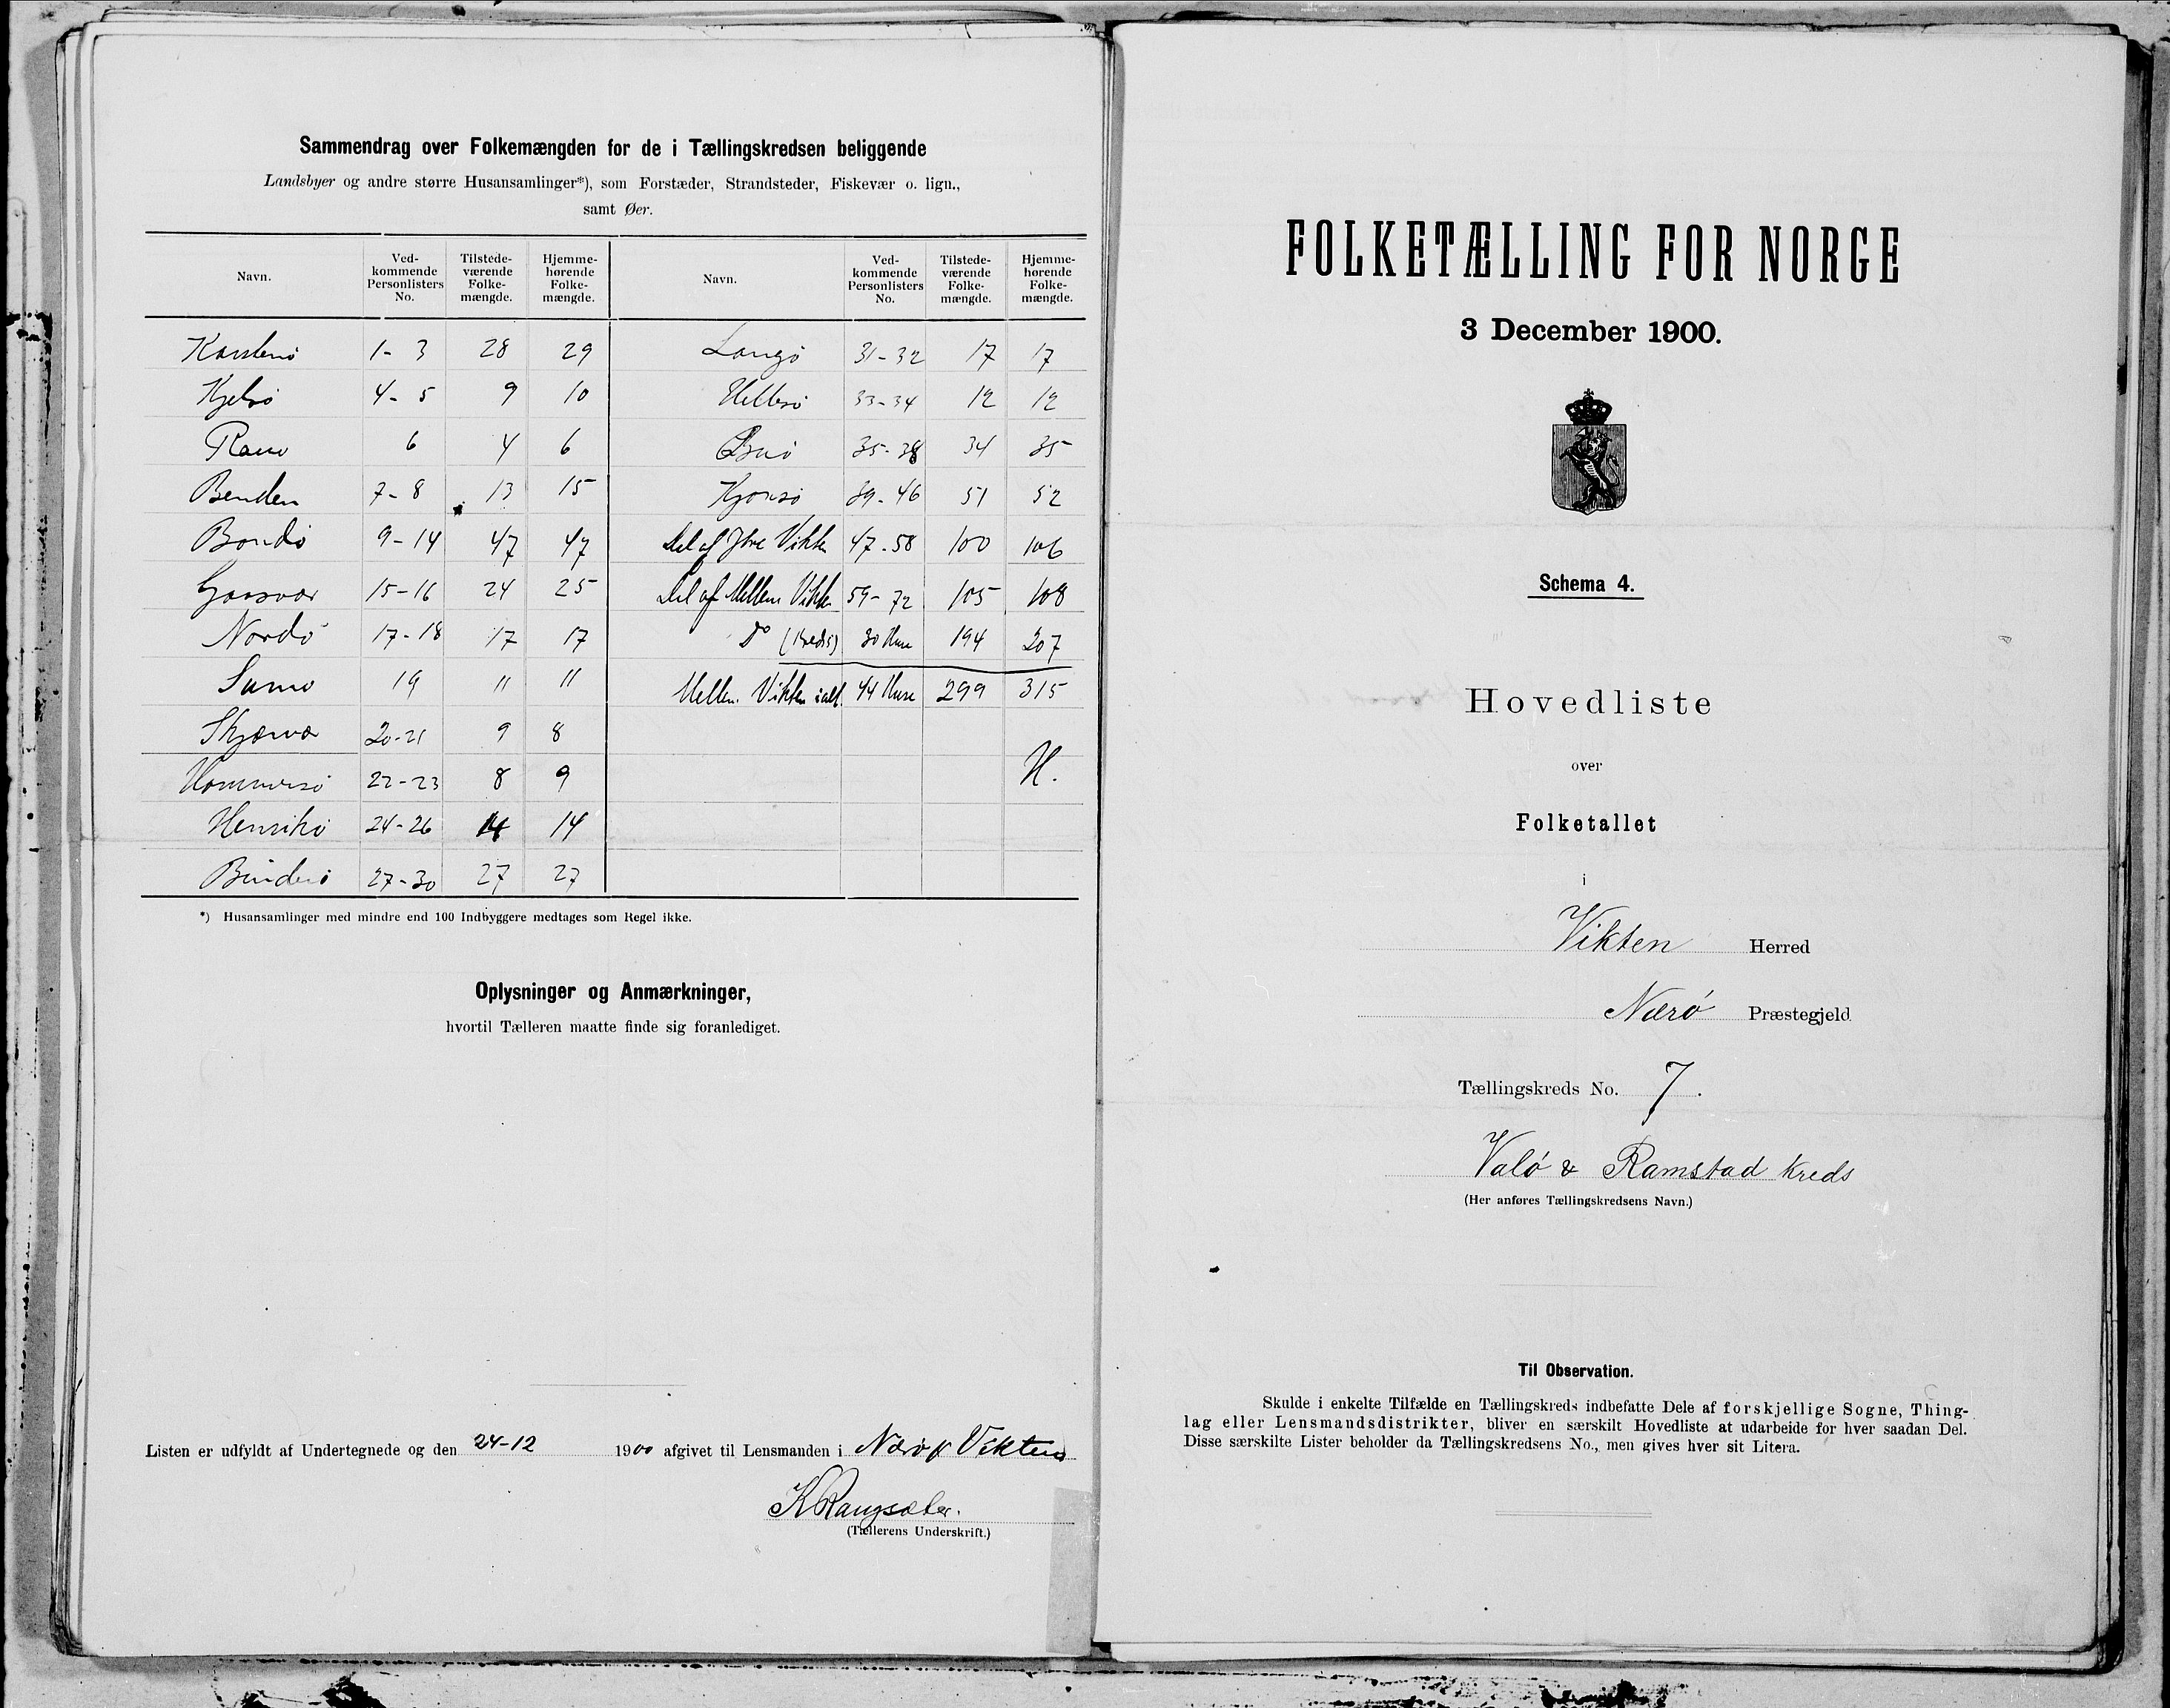 Sammendrag over Folkemængden for de i Tællingskredsen beliggende
Landsbyer og andre større Husansamlinger*), som Forstæder, Strandsteder, Fiskevær o. lign.,
samt Øer.
Navn. Ved-kommende Personlisters No. Tilstede-værende Folke-mængde. Hjemme-hørende Folke-mængde. Navn. Ved-kommende Personlisters No. Tilstede-værende Folke-mængde. Hjemme-hørende Folke-mængde.
Karstenø 1-3 28 29 Langø 31-32 17 17
Kjelsø 4-5 9 10 Hellesø 33-34 12 12
6 4 6 35-38 34 35
Benden 7-8 13 15 39-46 51 52
Bondø 9-14 47 47 Del af Ytre Vikten 47-58 100 106
15-16 24 25 Del af Mellem Vikten 59-72 105 108
Nordø 17-18 17 17 Do 30 Huse 194 207
19 11 11 Mellem Vikten ialt. 44 Huse 299 315
Skjærvær 20-21 9 8
Hommersø 22-23 8 9 H.
Henrikø 24-26 14 14
Binderø 27-30 27 27
*) Husansamlinger med mindre end 100 Indbyggere medtages som Regel ikke.
Oplysninger og Anmærkninger,
hvortil Tælleren maatte finde sig foranlediget.
Listen er udfyldt af Undertegnede og den 24-12 1900 afgivet til Lensmanden i Nærø & Vikten
K Rangsæter.
(Tællerens Underskrift.)
FOLKETÆLLING FOR NORGE
3 December 1900.
Schema 4.
Hovedliste
over
Folketallet
i
Vikten Herred
Nærø Præstegjeld
Tællingskreds No. 7.
Valø & Ramstad kreds
(Her anføres Tællingskredsens Navn.)
Til Observation.
Skulde i enkelte Tilfælde en Tællingskreds indbefatte Dele af forskjellige Sogne, Thing-
lag eller Lensmandsdistrikter, bliver en særskilt Hovedliste at udarbeide for hver saadan Del.
Disse særskilte Lister beholder da Tællingskredsens No., men gives hver sit Litera.